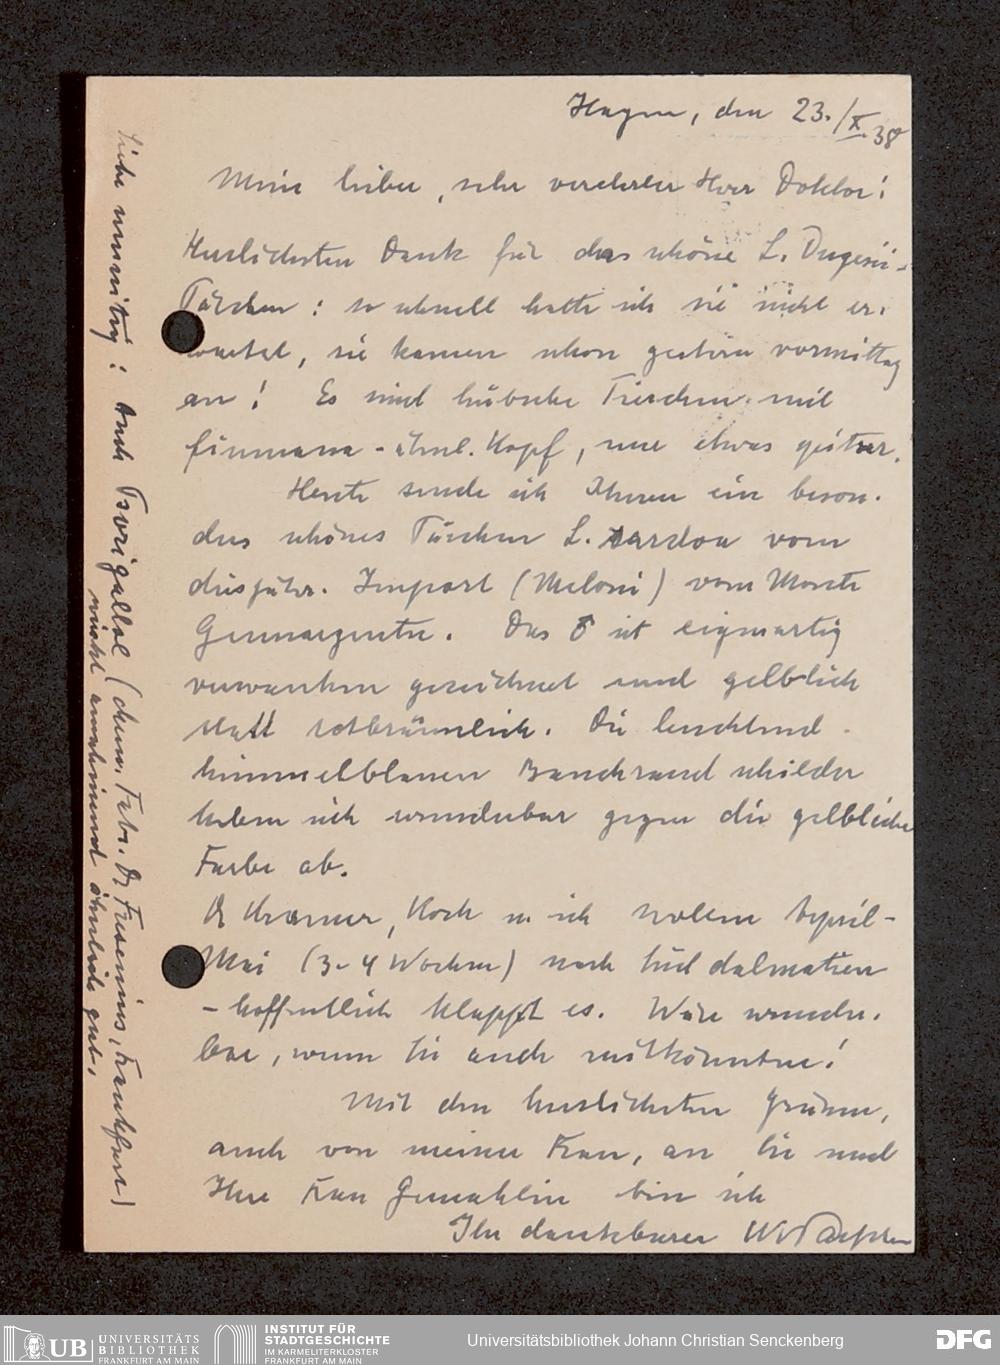 Hagen, den 23./X.38
Mein lieber, sehr verehrter Herr Doktor!
Herzlichsten Dank für das schöne L. Dugesii-
Pärchen: so schnell hatte ich sie nicht er-
wartet, sie kamen schon gestern vormittag
an! Es sind hübsche Tierchen mit
fiumana-ähnl. Kopf, nur etwas spitzer.
Heute sende ich Ihnen ein beson-
ders schönes Pärchen L. sardoa vom
diesjähr. Import (Meloni) vom Monte
Gennargentu. Das ♂ ist eigenartig
verwaschen gezeichnet und gelblich
statt rotbräunlich. Die leuchtend
himmelblauen Bauchrandschilder
heben sich wunderbar gegen die gelbliche
Farbe ab.
Dr Kramer, Koch u. ich wollen April-
Mai (3-4 Wochen) nach Süddalmatien
- hoffentlich klappt es. Wäre wunder-
bar, wenn Sie auch mitkönnten!
Mit den herzlichsten Grüssen,
auch von meiner Frau, an Sie und
Ihre Frau Gemahlin bin ich
Ihr dankbarer
Auch Tsorigallol (chem. Fabr. Dr Fresenius, Frankfurt)
wirkt annähernd ähnlich gut.
UB UNIVERSITÄTS
BIBLIOTHEK
FRANKFURT AM MAIN
INSTITUT FÜR
STADTGESCHICHTE
IM KARMELITERKLOSTER
FRANKFURT AM MAIN
Universitätsbibliothek Johann Christian Senckenberg
DFG